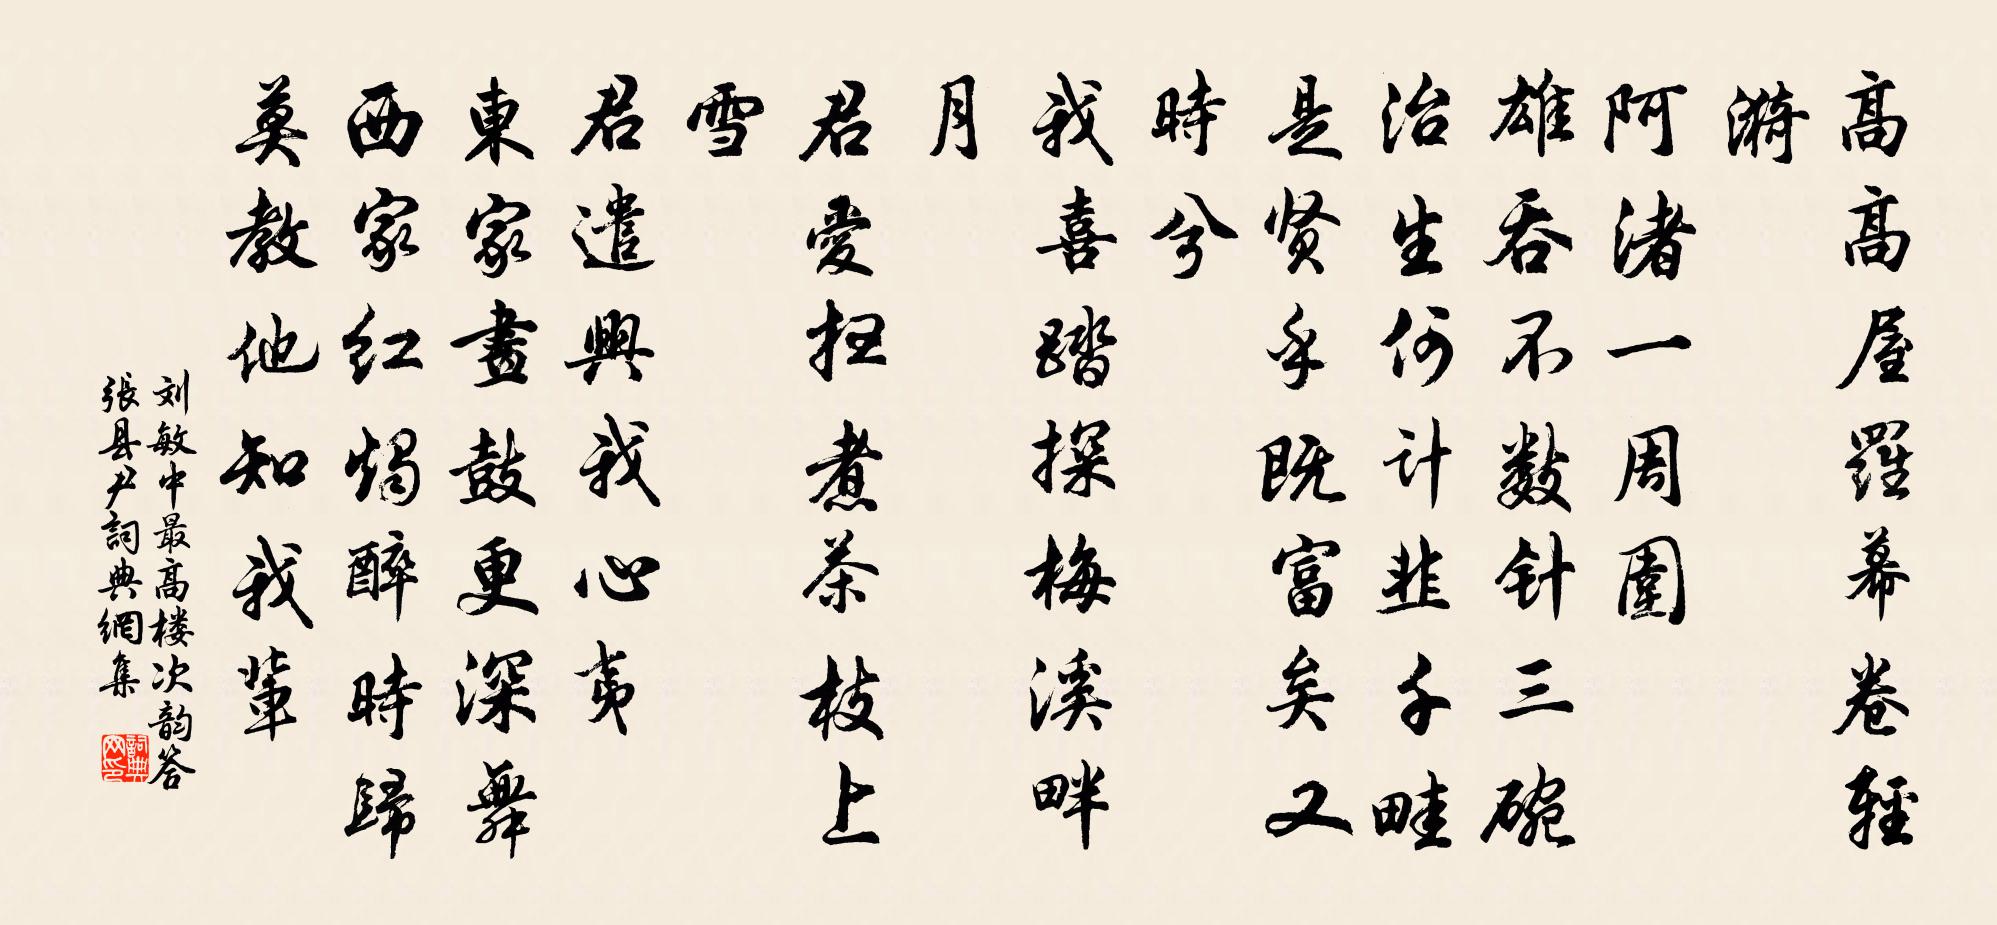 高高屋羅幕卷輕
漪
阿渚一周圍
雄吞不数针三碗
治生何计韭千畦
是贤乎既富矣又
時兮
我喜踏探梅溪畔
月
君愛扭煮茶枝上
雪
君遣興我心夷
東家畫鼓更深舞
西家红燭醉時歸
莫教他知我輩
刘敏中最高楼次韵答
張县尹詞典網集
詞典网印